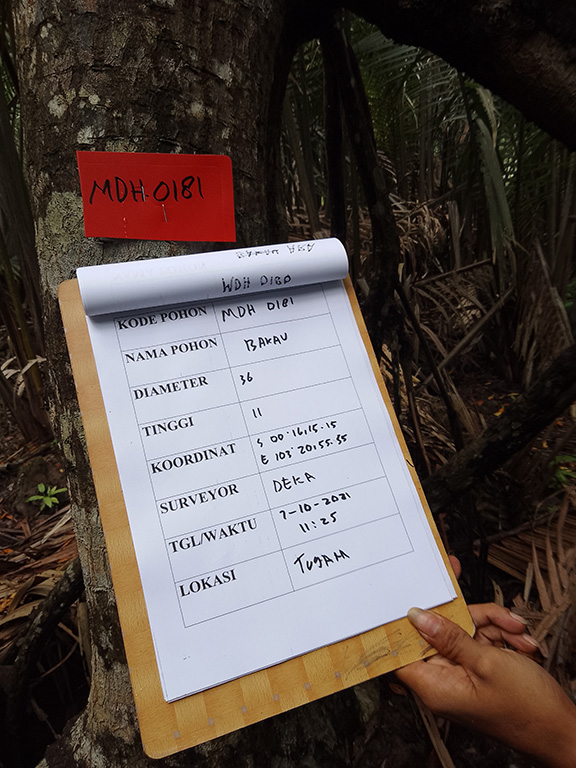 MDH.0181
MDH 0180
KODE POHON MDH 0181
NAMA POHON BAKAU
DIAMETER 36
TINGGI 11
KOORDINAT S 00.16.15.15
E 103.20.55.35
SURVEYOR DEKA
TGL/WAKTU 7-10-2021
11:25
LOKASI